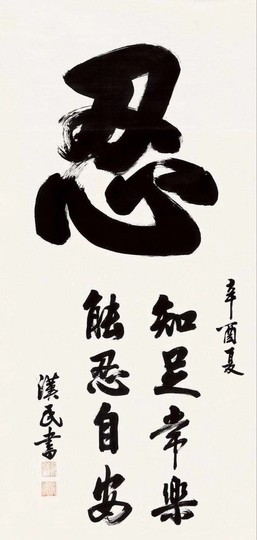 忍
辛酉夏
知足常樂
能忍自安
漢民書